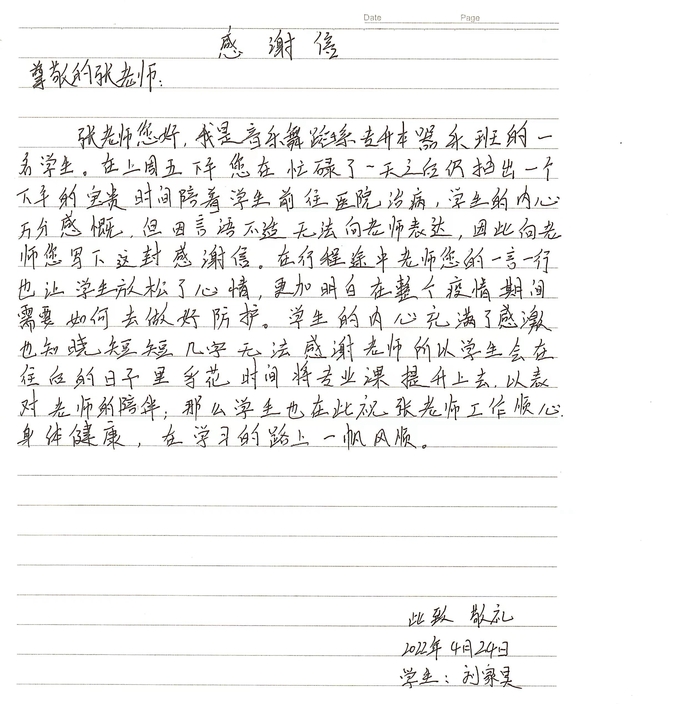 Date Page
感谢信
尊敬的张老师：
张老师您好，我是音乐舞蹈系专升本器乐班的一
名学生。在上周五下午您在忙碌了一天之后仍抽出一个
下午的宝贵时间陪着学生前往医院治病，学生的内心
万分感慨，但因言语不达无法向老师表达，因此向老
师您写下这封感谢信。在行程途中老师您的一言一行
也让学生放松了心情，更加明白在整个疫情期间
需要如何去做好防护。学生的内心充满了感激
也知晓短短几字无法感谢老师所以学生会在
往后的日子里多花时间将专业课提升上去，以表
对老师的陪伴；那么学生也在此祝张老师工作顺心
身体健康，在学习的路上一帆风顺。
此致 敬礼
2022年4月24日
学生：刘家昊